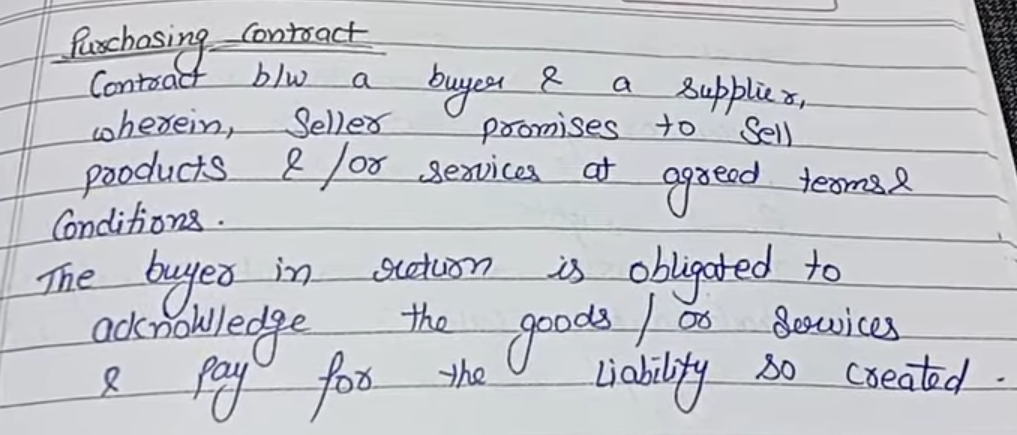 Purchasing Contract
Contract b/w a buyer & a supplier,
wherein, Seller promises to Sell
products & /or services at agreed terms &
Conditions.
The buyer in return is obligated to
acknowledge the goods / or Services
& Pay for the Liability so created.